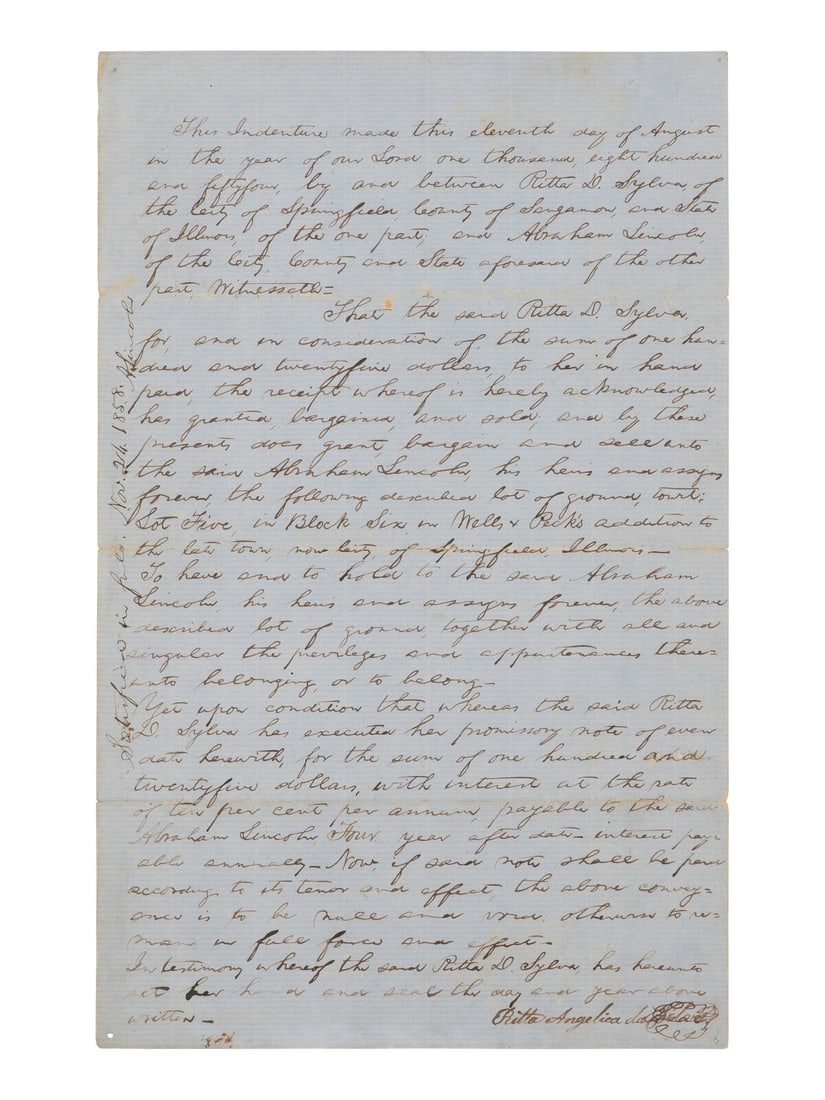 This Indenture made this eleventh day of August
in the year of our Lord one thousand, eight hundred
and fiftyfour, by and between Ritta D. Sylva, of
the City of Springfield, County of Sangamon, and State
of Illinois, of the one part, and Abraham Lincoln,
of the City, County and State aforesaid of the other
part, Witnesseth=
That the said Ritta D. Sylva,
for, and in consideration of, the sum of one hun-
dred and twentyfive dollars, to her in hand
paid, the receipt whereof is hereby acknowledged,
has granted, bargained, and sold, and by these
presents does grant, bargain and sell unto
the said Abraham Lincoln, his heirs and assigns
forever, the following described lot of ground, towit:
Lot Five, in Block Six, in Wells & Peck's addition to
the late town, now City, of Springfield, Illinois—
To have and to hold to the said Abraham
Lincoln, his heirs and assigns forever, the above
described lot of ground, together with all and
singular the privileges and appurtenances there=
unto belonging, or to belong—
Yet upon condition that whereas the said Ritta
D. Sylva has executed her promissory note of even
date herewith, for the sum of one hundred and
twentyfive dollars, with interest at the rate
of ten per cent per annum, payable to the said
Abraham Lincoln, Four year after date— interest pay-
able annually— Now, if said note shall be paid
according to its tenor and effect, the above convey-
ance is to be null and void, otherwise to re-
main in full force and effect—
In testimony whereof the said Ritta D. Sylva, has hereunto
set her hand and seal the day and year above
written—
Ritta Angelica da Silva
Satisfied in full. Nov. 24. 1858. A Lincoln